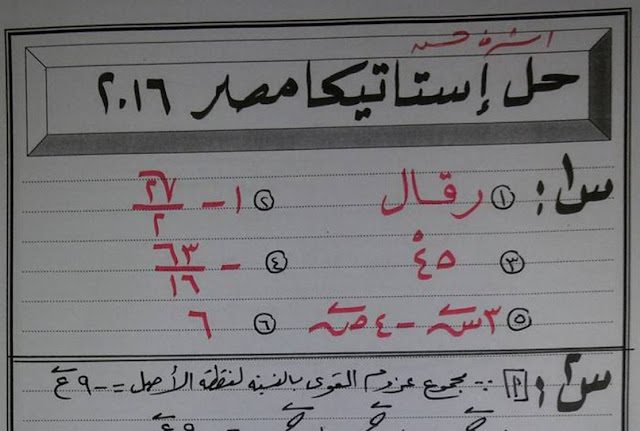 اشرف حسن
حل إستاتيكا مصر ٢٠١٦
س١: ① رقال ② ١ - ٢٧/٢
③ ٤٥° ④ - ٦٣/١٦
⑤ ٣س - ٤ص ⑥ ٦
س٢: [أ] ∵ مجموع عزوم القوى بالنسبة لنقطة الأصل = -٩ع